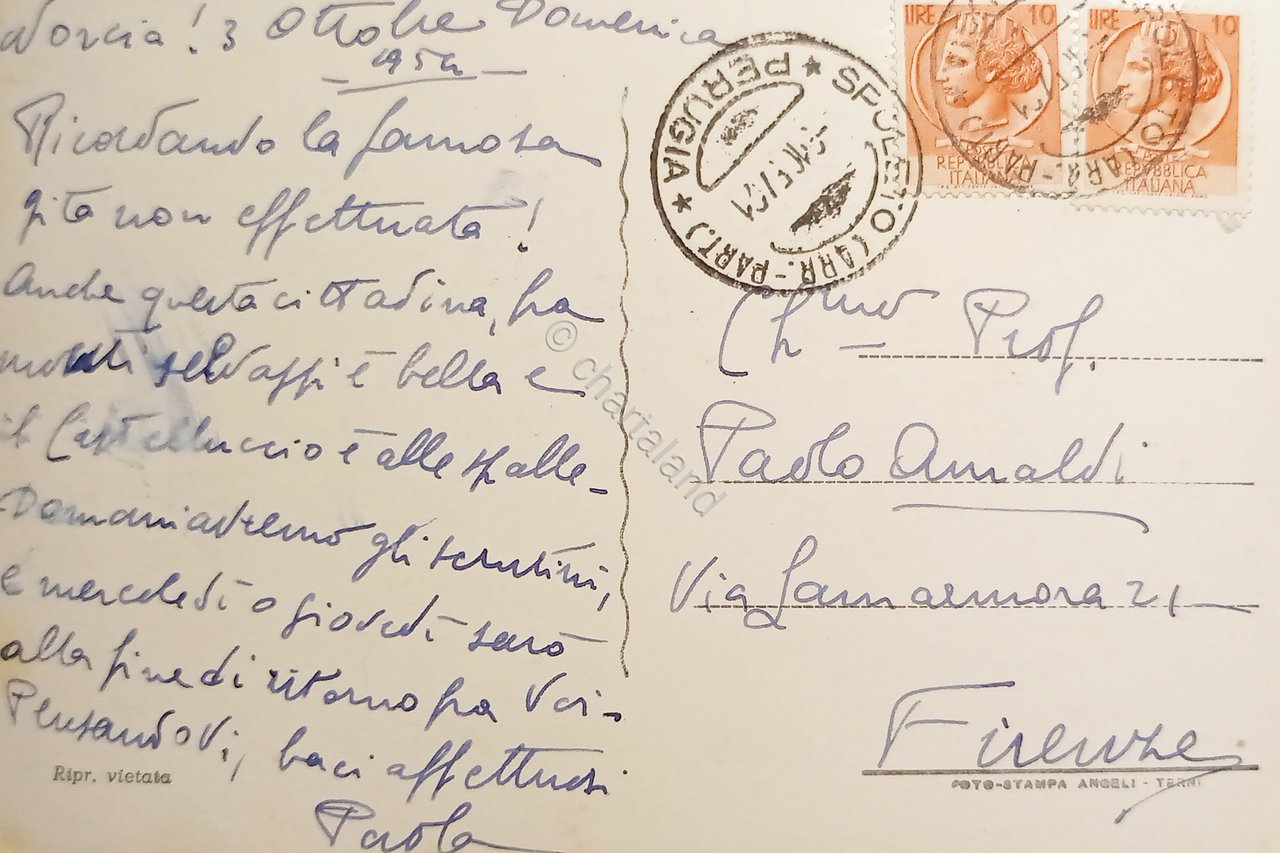 Norcia! 3 Ottobre Domenica
1954
Ricordando la famosa
gita non effettuata!
Anche questa cittadina, fra
monti selvaggi è bella e
il Castelluccio è alle spalle -
Domani avremo gli scrutini,
e mercoledì o giovedì sarò
alla fine di ritorno fra Voi -
PensandoVi, baci affettuosi
Paola
Ripr. vietata
SPOLETO (ARR.-PART.)
★ PERUGIA ★
LIRE 10
REPUBBLICA
ITALIANA
LIRE 10
REPUBBLICA
ITALIANA
Ch mo Prof.
Paolo Arnaldi
Via Lamarmora 21
Firenze
FOTO-STAMPA ANGELI - TERNI
© chartaland